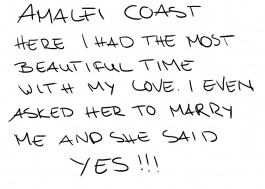 AMALFI COAST
HERE I HAD THE MOST
BEAUTIFUL TIME
WITH MY LOVE. I EVEN
ASKED HER TO MARRY
ME AND SHE SAID
YES!!!